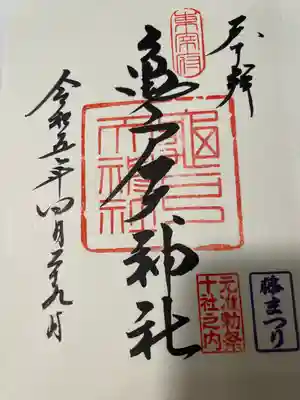 奉拝
東宰府
亀戸天神社
元准勅祭
十社之内
藤まつり
令和五年四月二十九日